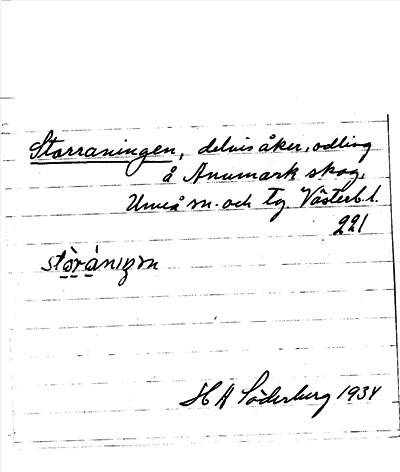 Storraningen, delvis åker, odling
å Anumark skog,
Umeå sn. och tg Västerb. l.
221
stòránıŋɜn
H A Söderberg 1934